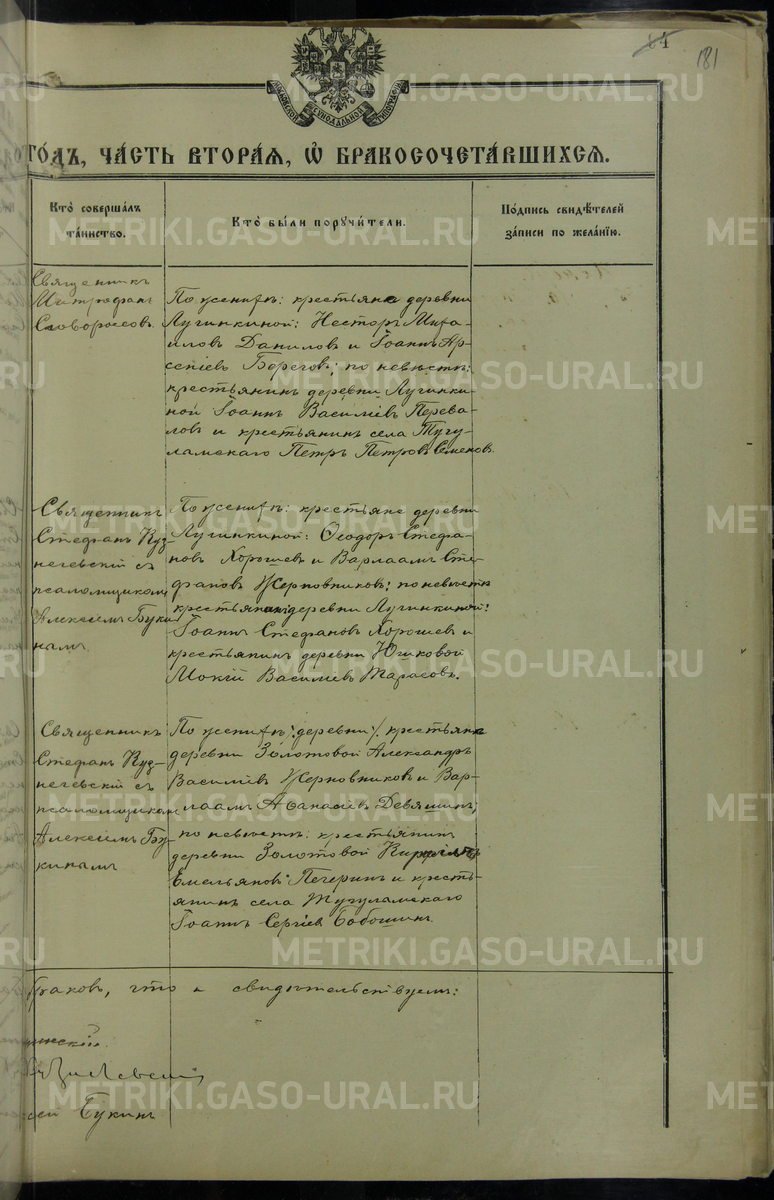 84
181
ГО́ДЪ, ЧА́СТЬ ВТОРА́Я, Ѡ҆ БРАКОСОЧЕТА́ВШИХСЯ.
Кто̀ соверша́лъ
та́инство.
Кто̀ бы́ли поручи́тели.
По́дпись свидѣ́телей
за́писи по жела́нїю.
Священникъ
Митрофанъ
Словоросовъ.
По женихѣ: крестьяне деревни
Лучинкиной: Несторъ Миха-
иловъ Даниловъ и Іоаннъ Ар-
сеніевъ Береговъ; по невѣстѣ:
крестьянинъ деревни Лучинки-
ной Іоаннъ Василіевъ Перева-
ловъ и крестьянинъ села Тугу-
ламскаго Петръ Петровъ Семеновъ.
Священникъ
Стефанъ Куз-
нечевскій съ
псаломщикомъ
Алексѣемъ Буки-
нымъ
По женихѣ: крестьяне деревни
Лучинкиной: Ѳеодоръ Стефа-
новъ Хорошевъ и Варлаамъ Сте-
фановъ Жерновниковъ; по невѣстѣ
крестьянинъ деревни Лучинкиной:
Іоаннъ Стефановъ Хорошевъ и
крестьянинъ деревни Юшковой
Мокій Василіевъ Тарасовъ.
Священникъ
Стефанъ Куз-
нечевскій съ
псаломщикомъ
Алексѣемъ Бу-
кинымъ
По женихѣ: деревни /. крестьяне
деревни Золотовой Александръ
Василіевъ Жерновниковъ и Вар-
лаамъ Аѳанасіевъ Девяшинъ;
по невѣстѣ: крестьянинъ
деревни Золотовой Кириллъ
Емельяновъ Печеринъ и кресть-
янинъ села Тугуламскаго
Іоаннъ Сергіевъ Бабошинъ.
браковъ, что и свидѣтельствуемъ:
Букинъ
METRIKI.GASO-URAL.RU